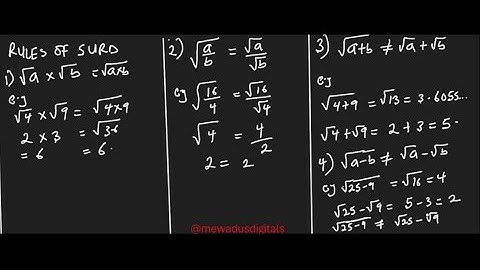 RULES OF SURD
1) √a × √b = √a×b
e.g
√4 × √9 = √4×9
2 × 3 = √36
= 6 = 6.
2) √a/b = √a/√b
eg √16/4 = √16/√4
√4 = 4/2
2 = 2
3) √a+b ≠ √a + √b
eg
√4+9 = √13 = 3.6055...
√4 + √9 = 2 + 3 = 5.
4) √a-b ≠ √a - √b
eg √25-9 = √16 = 4
√25 - √9 = 5 - 3 = 2
√25-9 ≠ √25 - √9
@mewadusdigitals